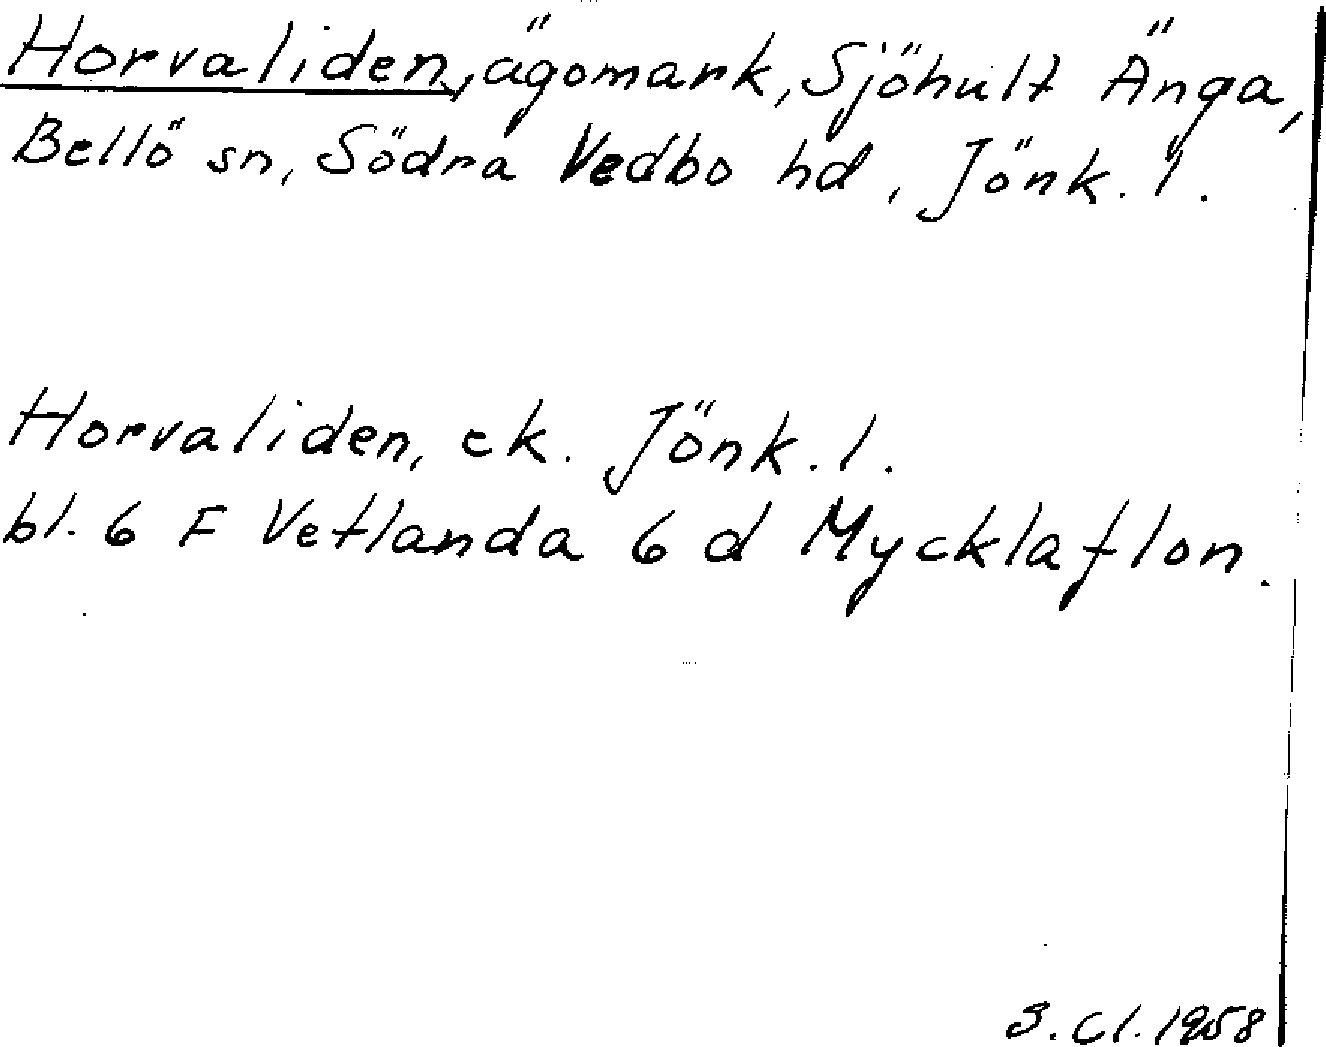 Horvaliden, ägomark, Sjöhult Änga,
Bellö sn, Södra Vedbo hd, Jönk. l.
Horvaliden, ek. Jönk. l.
bl. 6 F Vetlanda 6 d Mycklaflon.
S. Cl. 1958